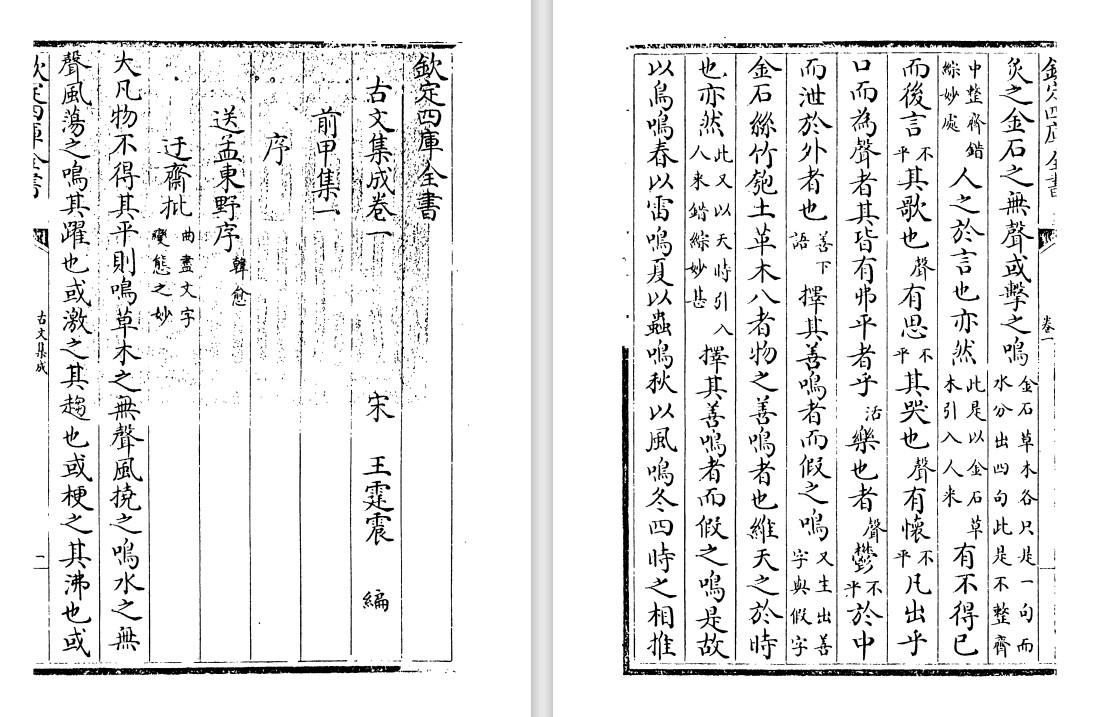 欽定四庫全書
古文集成卷一 宋 王霆震 編
前甲集一
序
送孟東野序 韓愈
迂齋批 曲盡文字變態之妙
大凡物不得其平則鳴草木之無聲風撓之鳴水之無
聲風蕩之鳴其躍也或激之其趨也或梗之其沸也或
欽定四庫全書 古文集成
欽定四庫全書 卷一
炙之金石之無聲或擊之鳴金石草木各只是一句而水分出四句此是不整齊
中整齊錯綜妙處人之於言也亦然此是以金石草木引入人來有不得已
而後言不平其歌也聲有思不平其哭也聲有懷不平凡出乎
口而為聲者其皆有弗平者乎活樂也者聲鬱不平於中
而泄於外者也善下語擇其善鳴者而假之鳴又生出善字與假字
金石絲竹匏土革木八者物之善鳴者也維天之於時
也亦然此又以天時引入人來錯綜妙甚擇其善鳴者而假之鳴是故
以鳥鳴春以雷鳴夏以蟲鳴秋以風鳴冬四時之相推